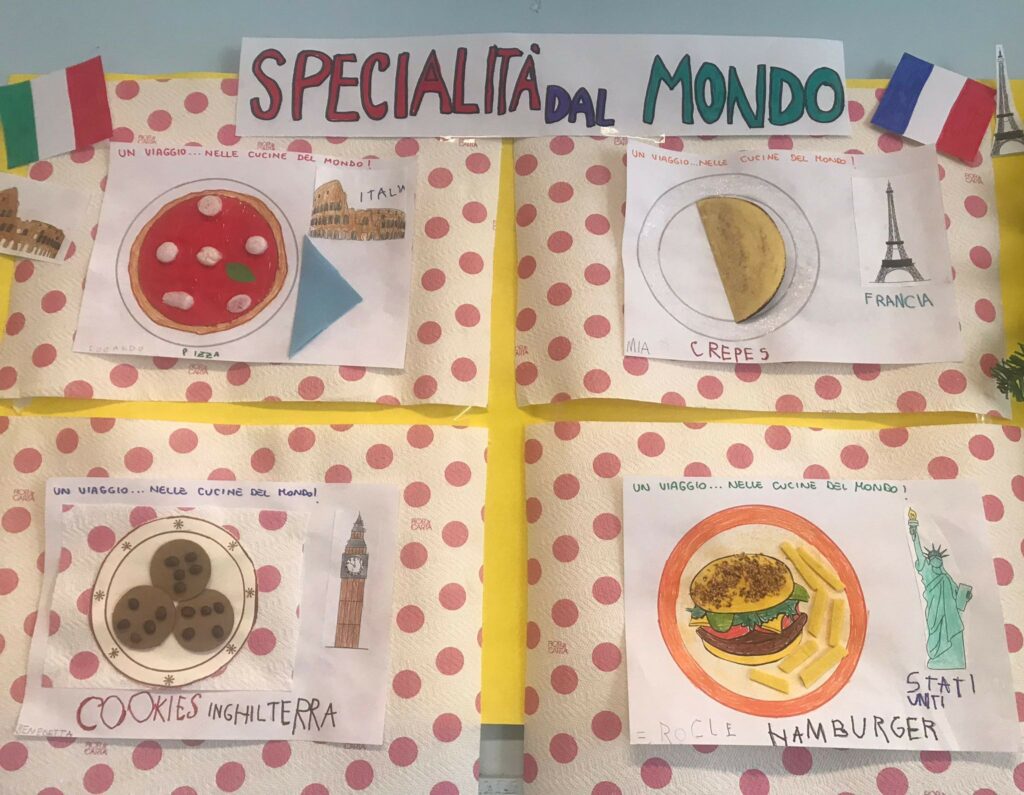 SPECIALITÀ DAL MONDO
UN VIAGGIO...NELLE CUCINE DEL MONDO!
ITALIA
PIZZA
UN VIAGGIO...NELLE CUCINE DEL MONDO!
FRANCIA
MIA
CREPES
UN VIAGGIO...NELLE CUCINE DEL MONDO!
COOKIES INGHILTERRA
BENEDETTA
UN VIAGGIO...NELLE CUCINE DEL MONDO!
STATI
UNITI
HAMBURGER